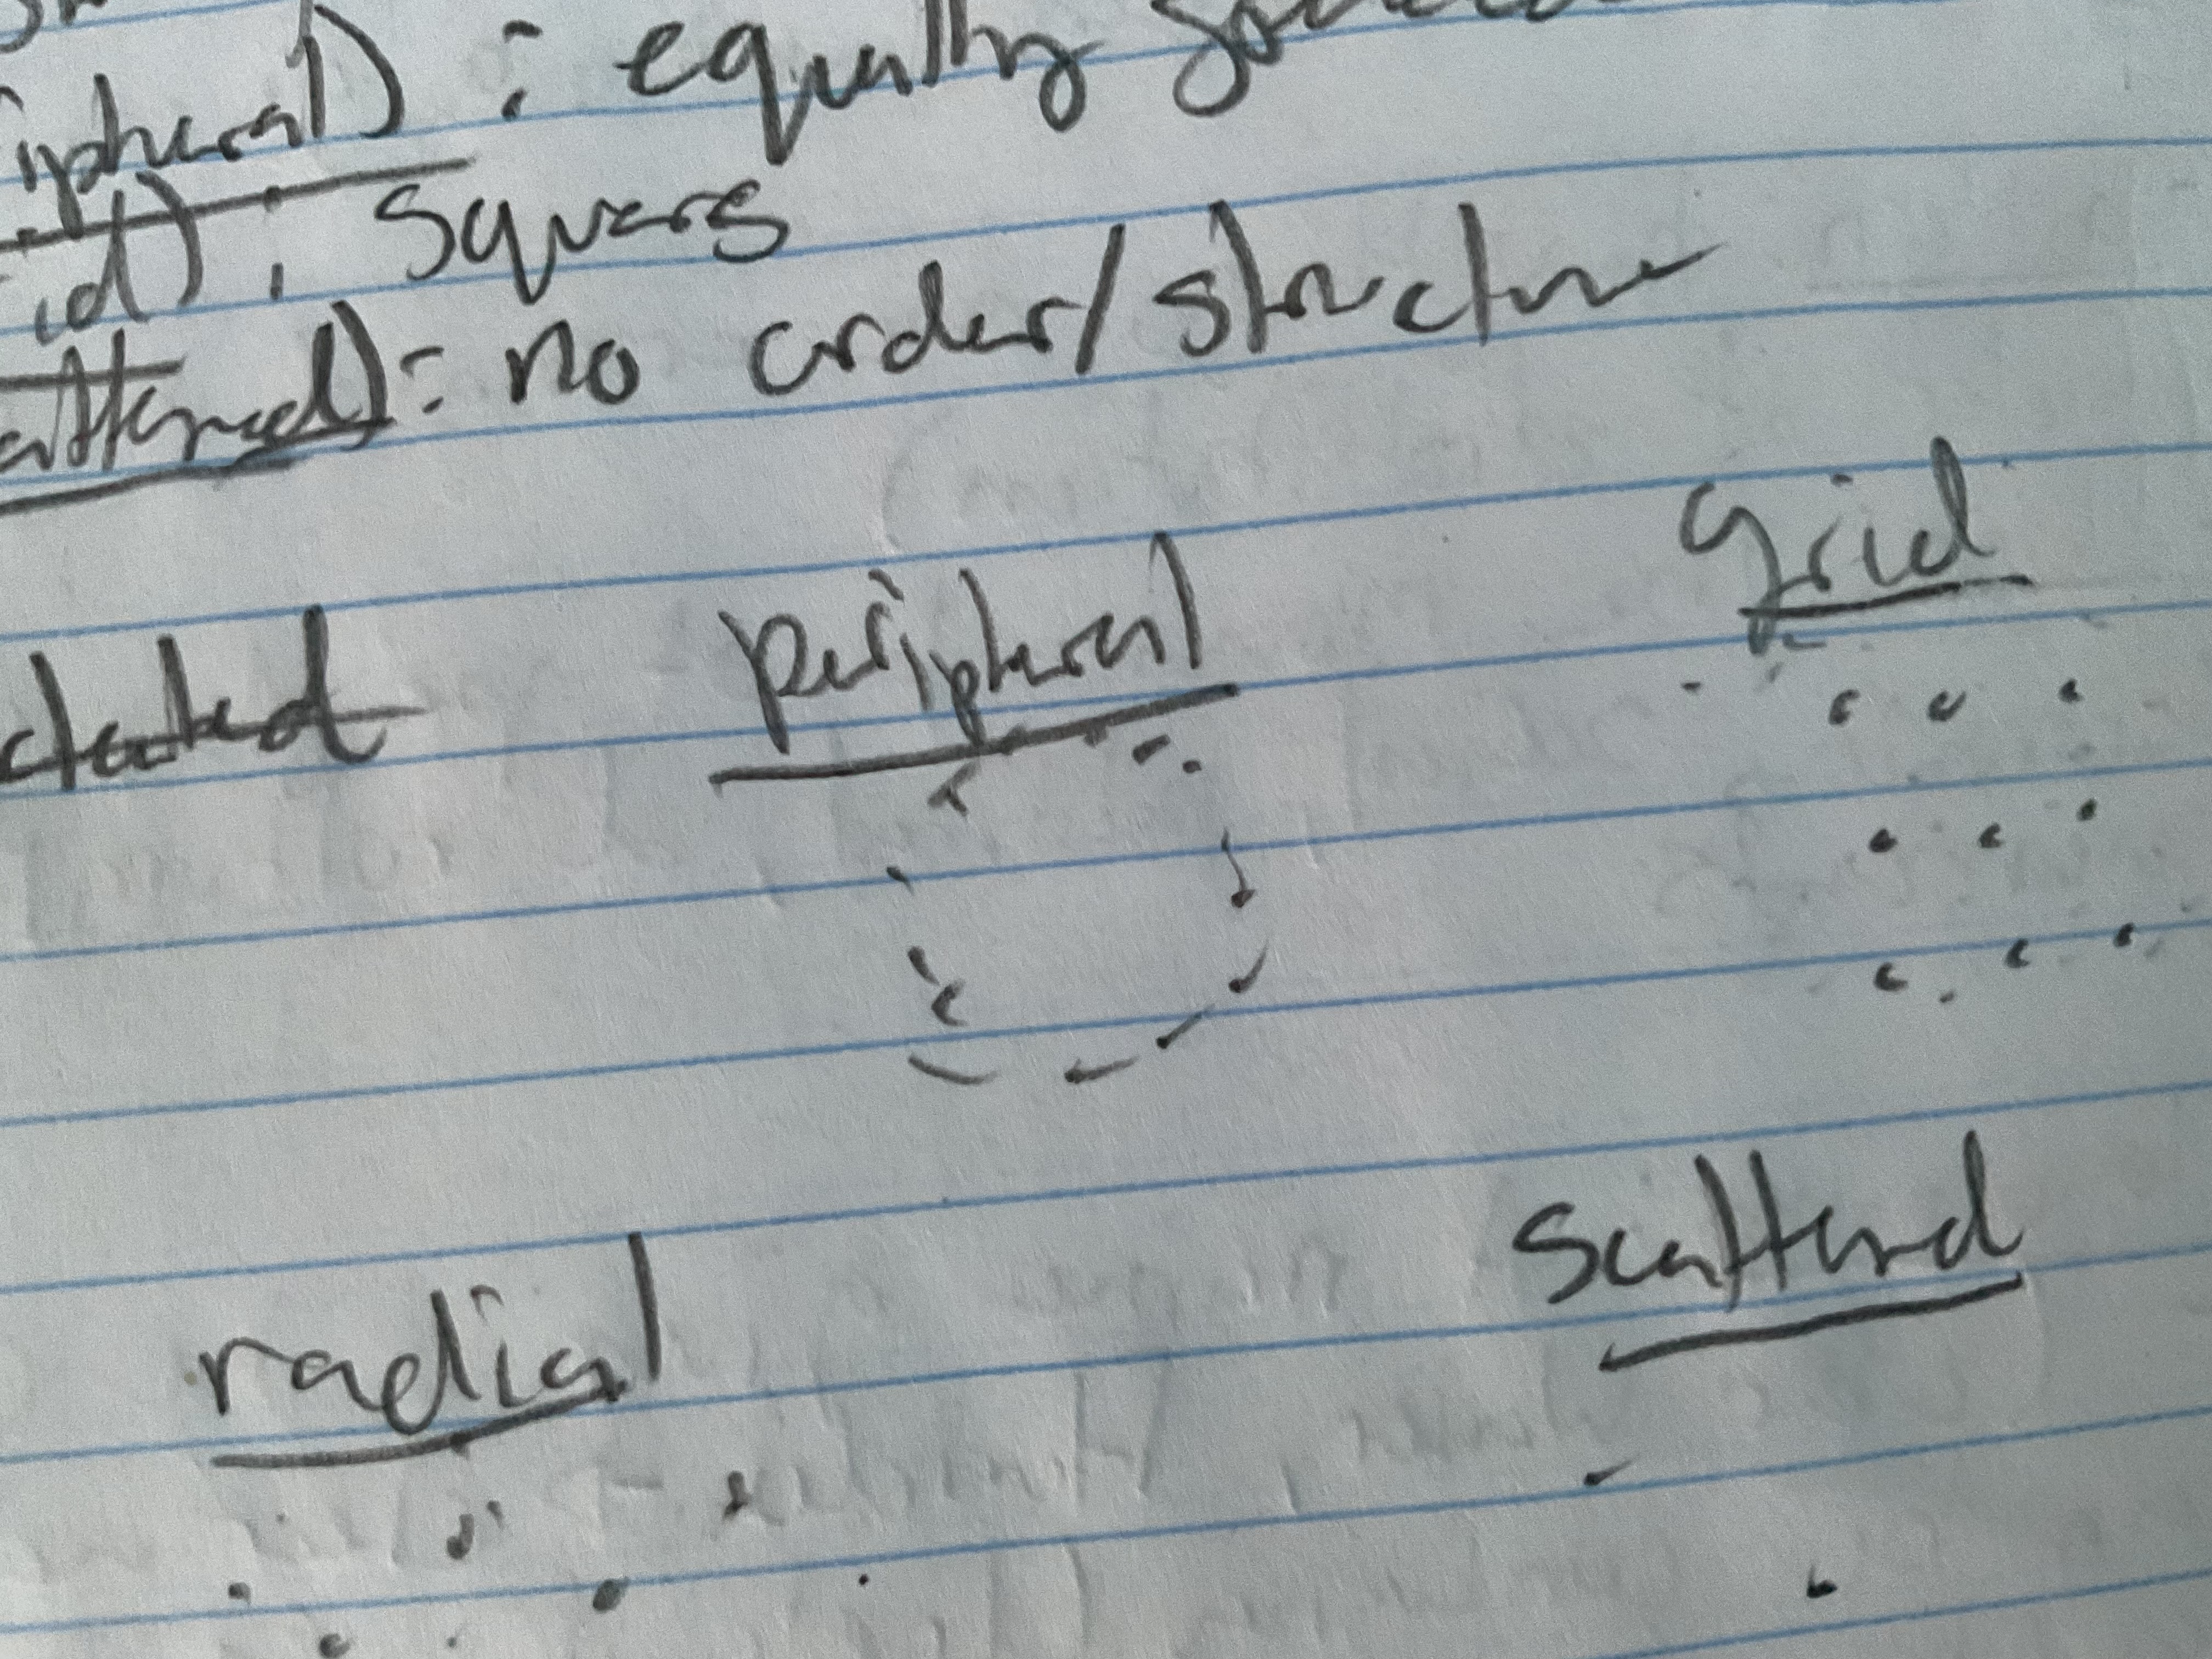 ipheral) : equally
id) : squares
attered) : no order/structure
grid
peripheral
radial
scattered